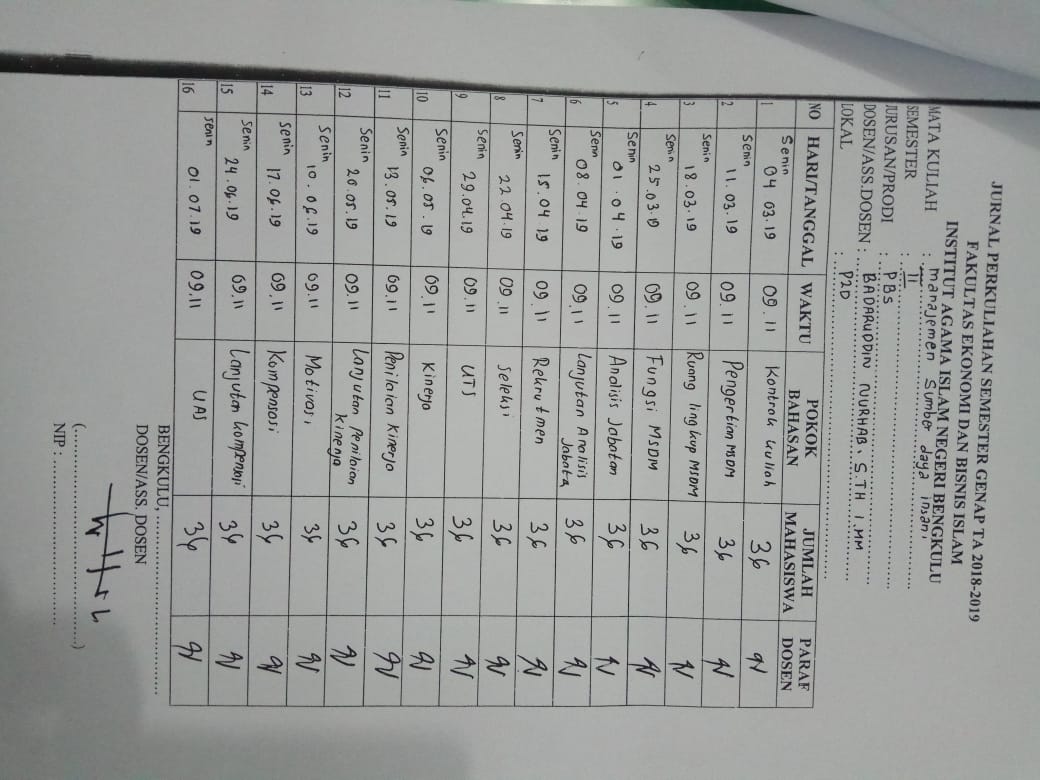 JURNAL PERKULIAHAN SEMESTER GENAP TA 2018-2019
FAKULTAS EKONOMI DAN BISNIS ISLAM
INSTITUT AGAMA ISLAM NEGERI BENGKULU
MATA KULIAH : manajemen Sumber daya insani
SEMESTER : II
JURUSAN/PRODI : PBS
DOSEN/ASS.DOSEN : BADARUDDIN NURHAB, S.TH I.MM
LOKAL : P2D
NO HARI/TANGGAL WAKTU POKOK BAHASAN JUMLAH MAHASISWA PARAF DOSEN
1 Senin 04 03.19 09.11 Kontrak kuliah 36
2 Senin 11.03.19 09.11 Pengertian MSDM 36
3 Senin 18.03.19 09.11 Ruang lingkup MSDM 36
4 Senin 25.03.19 09.11 Fungsi MSDM 36
5 Senin 01.04.19 09.11 Analisis Jabatan 36
6 Senin 08.04.19 09.11 Lanjutan Analisis Jabata 36
7 Senin 15.04 19 09.11 Rekrutmen 36
8 Senin 22.04.19 09.11 Seleksi 36
9 Senin 29.04.19 09.11 UTS 36
10 Senin 06.05.19 09.11 Kinerja 36
11 Senin 13.05.19 09.11 Penilaian Kinerja 36
12 Senin 20.05.19 09.11 Lanjutan penilaian kinerja 36
13 Senin 10.06.19 09.11 Motivasi 36
14 Senin 17.06.19 09.11 Kompensasi 36
15 Senin 24.06.19 09.11 Lanjutan kompensasi 36
16 senin 01.07.19 09.11 UAS 36
BENGKULU,
DOSEN/ASS. DOSEN
(..........)
NIP :